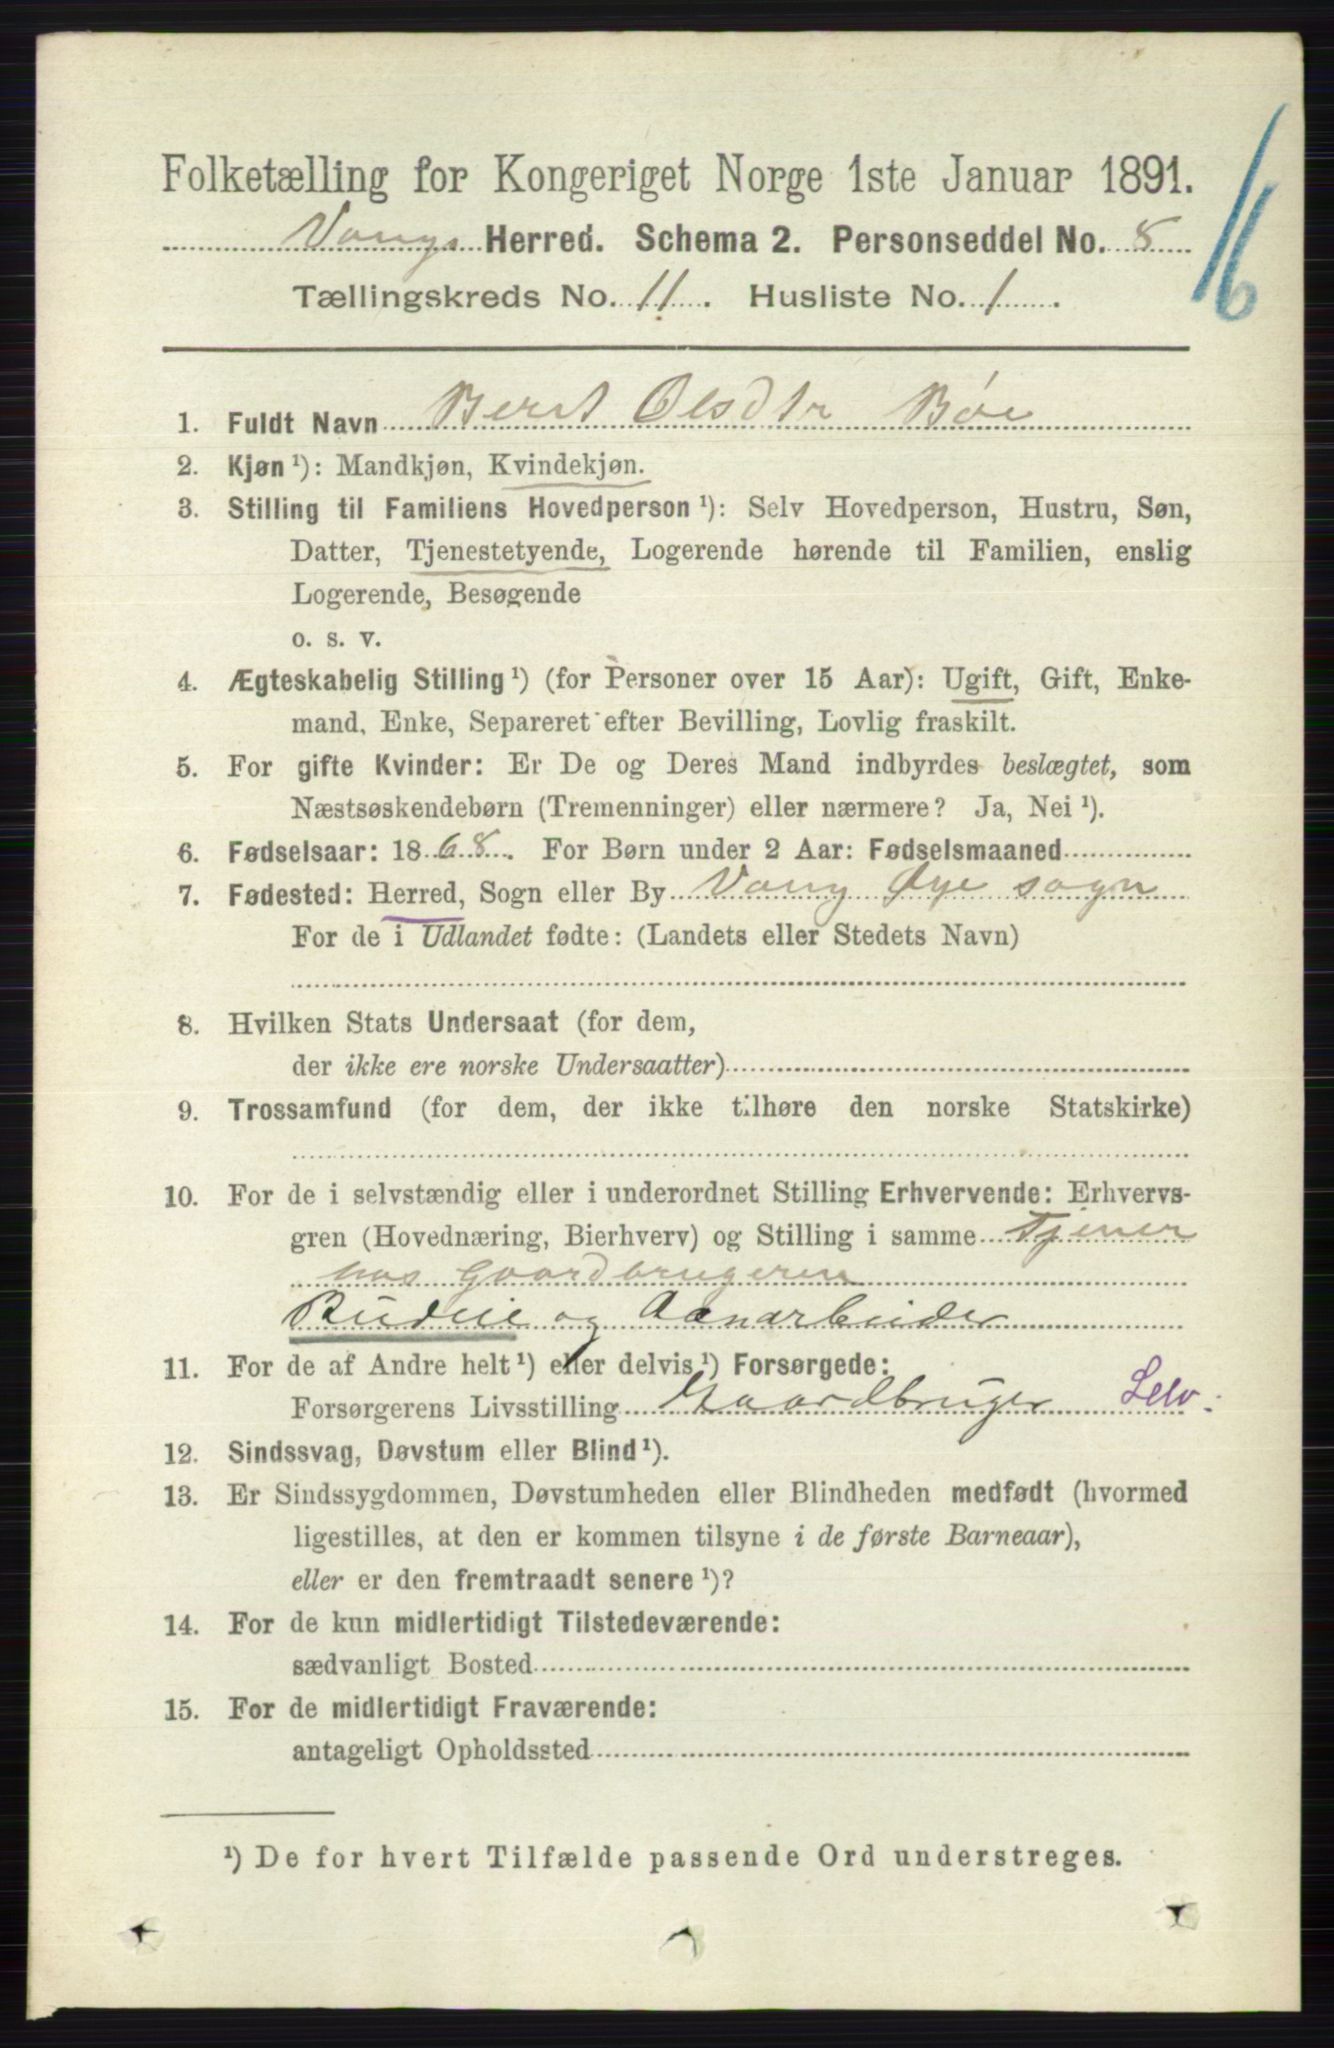 Folketælling for Kongeriget Norge 1ste Januar 1891.
16
Vangs Herred. Schema 2. Personseddel No. 8
Tællingskreds No. 11. Husliste No. 1.
1. Fuldt Navn Berit Olsdtr Bøe
2. Kjøn ¹): Mandkjøn, Kvindekjøn.
3. Stilling til Familiens Hovedperson ¹): Selv Hovedperson, Hustru, Søn,
Datter, Tjenestetyende, Logerende hørende til Familien, enslig
Logerende, Besøgende
o. s. v.
4. Ægteskabelig Stilling ¹) (for Personer over 15 Aar): Ugift, Gift, Enke-
mand, Enke, Separeret efter Bevilling, Lovlig fraskilt.
5. For gifte Kvinder: Er De og Deres Mand indbyrdes beslægtet, som
Næstsøskendebørn (Tremenninger) eller nærmere? Ja, Nei ¹).
6. Fødselsaar: 1868. For Børn under 2 Aar: Fødselsmaaned
7. Fødested: Herred, Sogn eller By Vang Øye sogn
For de i Udlandet fødte: (Landets eller Stedets Navn)
8. Hvilken Stats Undersaat (for dem,
der ikke ere norske Undersaatter)
9. Trossamfund (for dem, der ikke tilhøre den norske Statskirke)
10. For de i selvstændig eller i underordnet Stilling Erhvervende: Erhvervs-
gren (Hovednæring, Bierhverv) og Stilling i samme Tjener
hos Gaardbrugeren
Budeie og Aanarbeider
11. For de af Andre helt ¹) eller delvis ¹) Forsørgede:
Forsørgerens Livsstilling Gaardbruger Selv.
12. Sindssvag, Døvstum eller Blind ¹).
13. Er Sindssygdommen, Døvstumheden eller Blindheden medfødt (hvormed
ligestilles, at den er kommen tilsyne i de første Barneaar),
eller er den fremtraadt senere ¹)?
14. For de kun midlertidigt Tilstedeværende:
sædvanligt Bosted
15. For de midlertidigt Fraværende:
antageligt Opholdssted
¹) De for hvert Tilfælde passende Ord understreges.